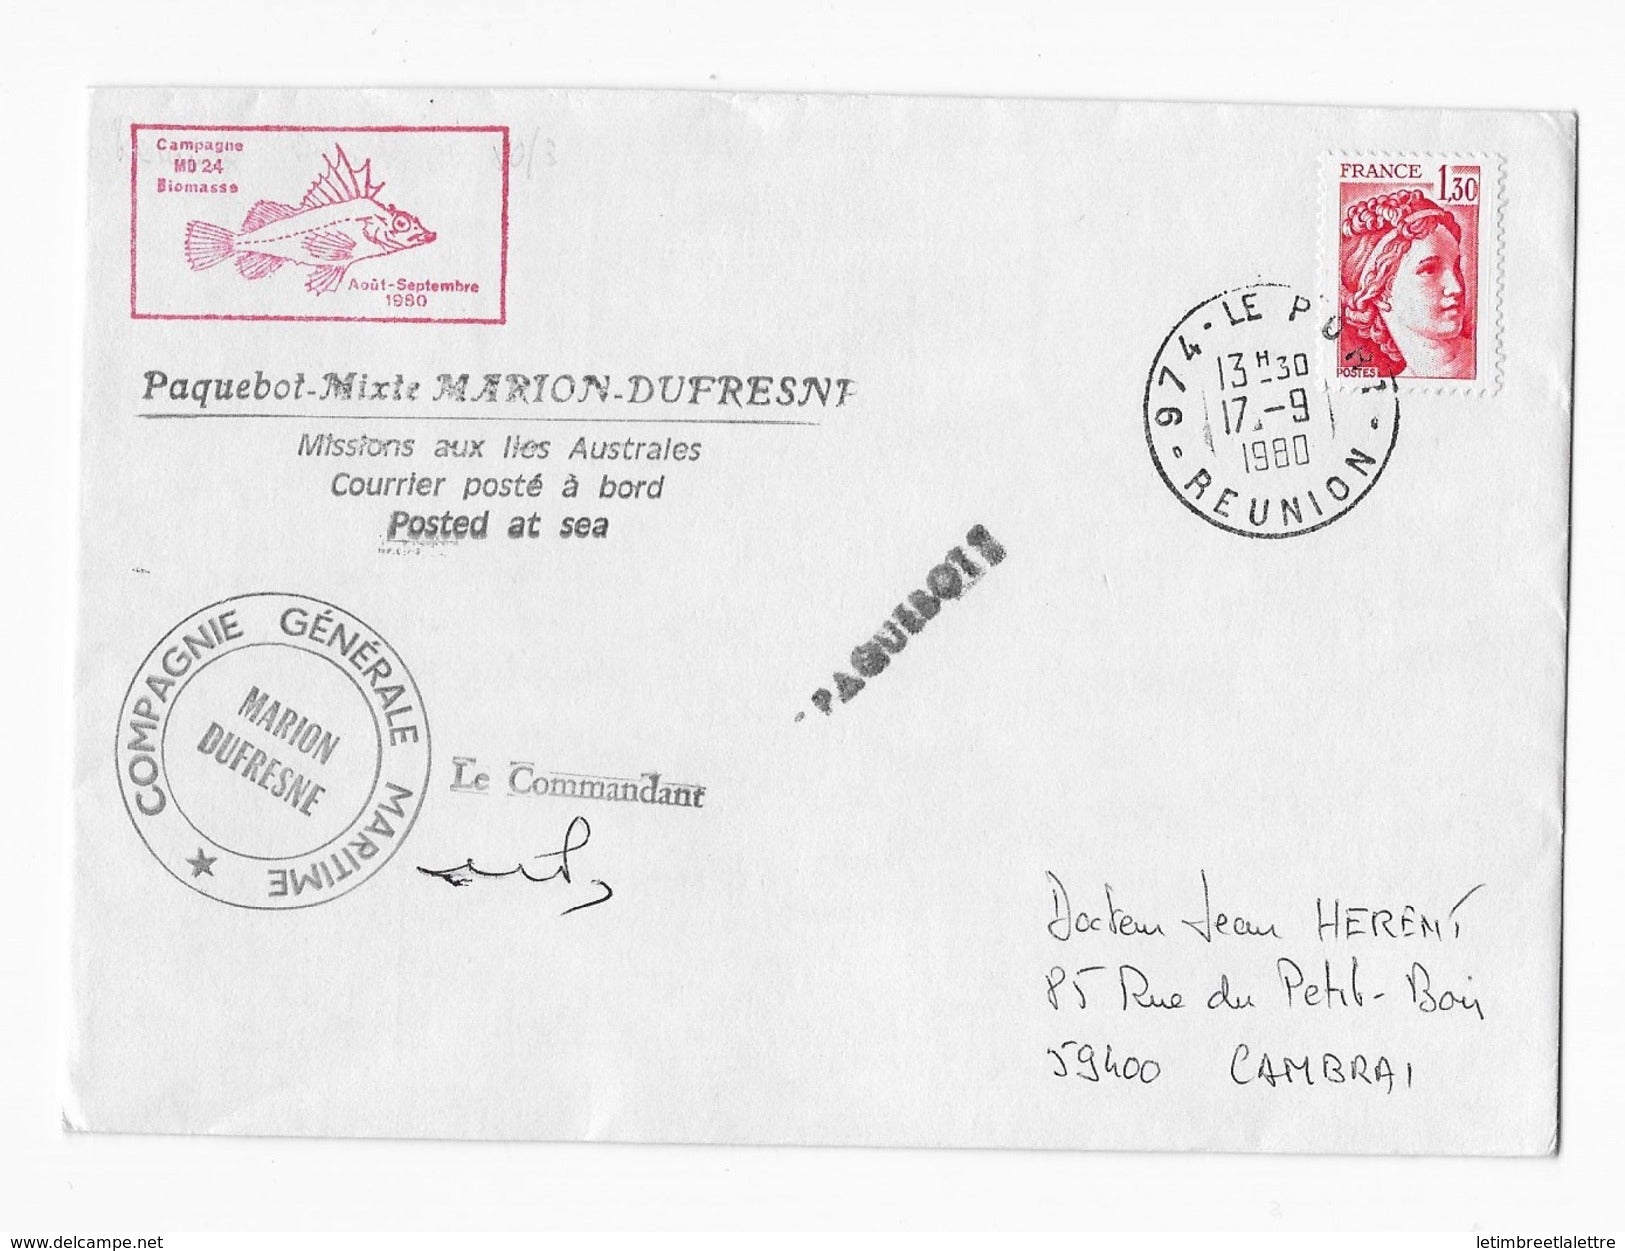 Campagne
MD 24
Biomasse
Août-Septembre
1980
FRANCE 1,30
POSTES
974 - LE PORT
13 H 30
17 - 9
1980
REUNION
Paquebot-Mixte MARION-DUFRESNE
Missions aux Iles Australes
Courrier posté à bord
Posted at sea
- PAQUEBOTS
COMPAGNIE GÉNÉRALE MARITIME
MARION
DUFRESNE
Le Commandant
Docteur Jean HERENT
85 Rue du Petit-Bois
59400 CAMBRAI
www.delcampe.net
letimbreetlalettre